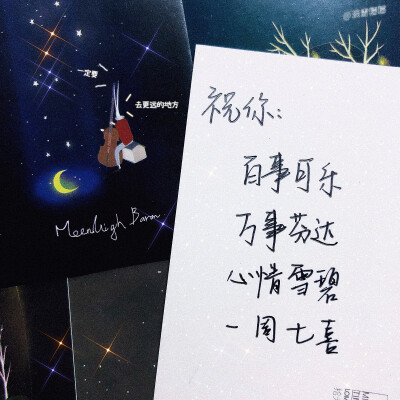 一定要
去更远的地方
祝你:
百事可乐
万事芬达
心情雪碧
一周七喜